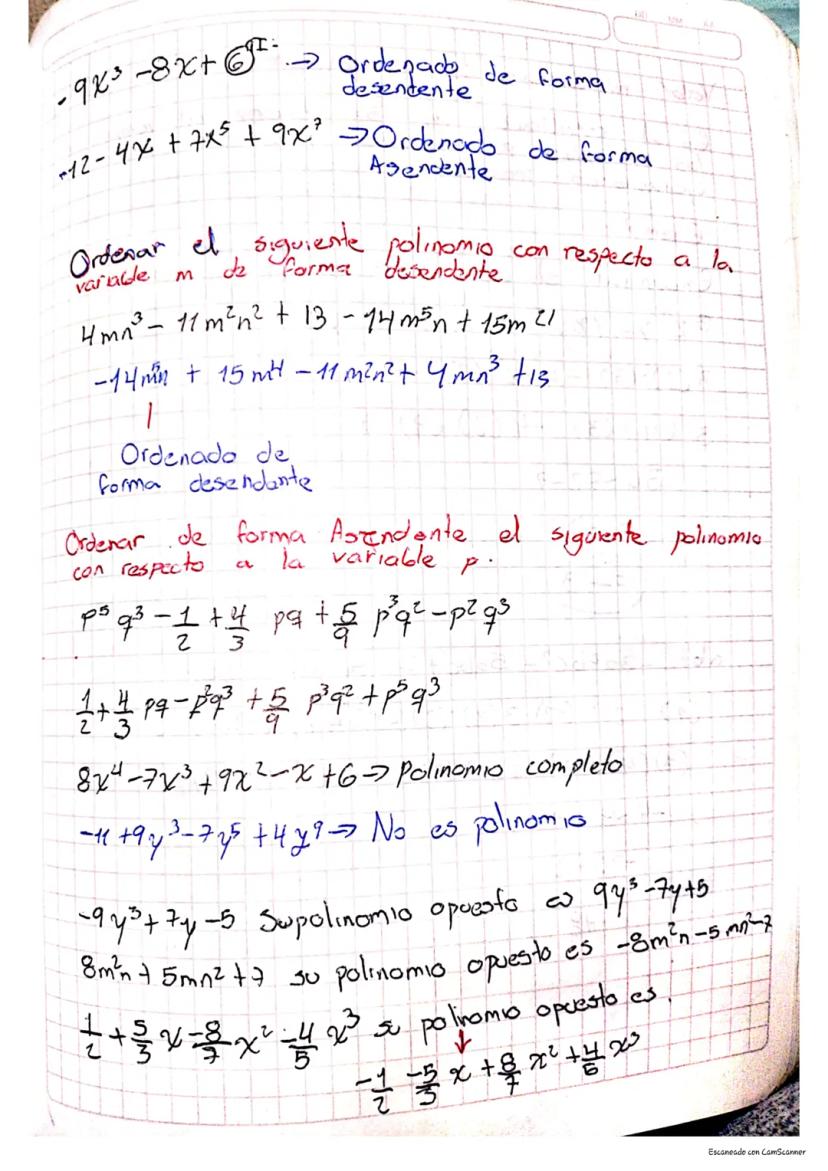 -9x³ -8x + 6 gI. → Ordenado de forma
desendente
-12 - 4x + 7x⁵ + 9x⁷ → Ordenado de forma
Asendente
Ordenar el siguiente polinomio con respecto a la
variable m de forma desendente
4mn³ - 11m²n² + 13 - 14m⁵n + 15m⁴
-14m⁵n + 15m⁴ - 11m²n² + 4mn³ + 13
Ordenado de
forma desendante
Ordenar de forma Asendente el siguiente polinomio
con respecto a la variable p.
p⁵q³ - 1/2 + 4/3 pq + 5/9 p³q² - p²q³
1/2 + 4/3 pq - p²q³ + 5/9 p³q² + p⁵q³
8x⁴ - 7x³ + 9x² - x + 6 → Polinomio completo
-11 + 9y³ - 7y⁵ + 4y⁹ → No es polinomio
-9y³ + 7y - 5 Su polinomio opuesto es 9y³ - 7y + 5
8m²n + 5mn² + 7 su polinomio opuesto es -8m²n - 5mn² - 7
1/2 + 5/3 x - 8/7 x² - 4/5 x³ su polinomo opuesto es.
-1/2 - 5/3 x + 8/7 x² + 4/5 x³
Escaneado con CamScanner